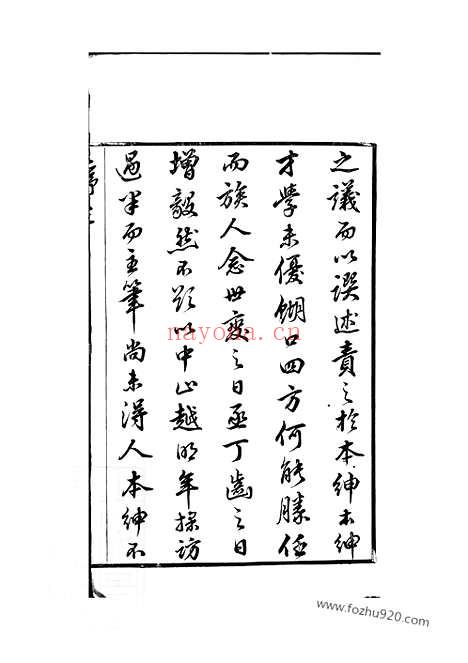 之議而以譔述責之於本紳本紳
才學未優餬口四方何能勝任
而族人念世變之日亟丁齒之日
增毅然不欲以中止越明年採訪
過半而主筆尚未得人本紳不
序三
nayona.cn
www.fozhu920.com